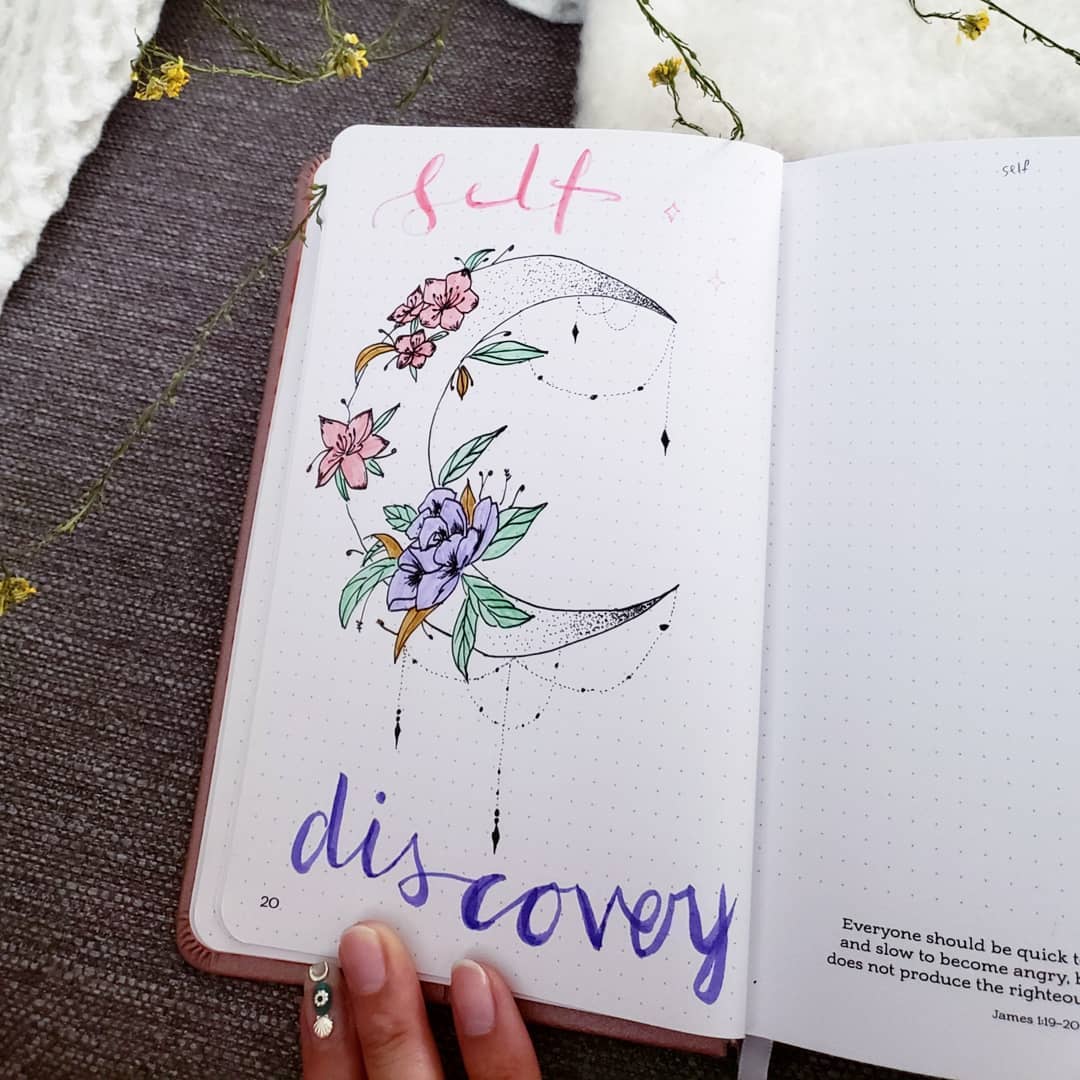 self
discovery
20
self
Everyone should be quick
and slow to become angry,
does not produce the
James 1:19–20